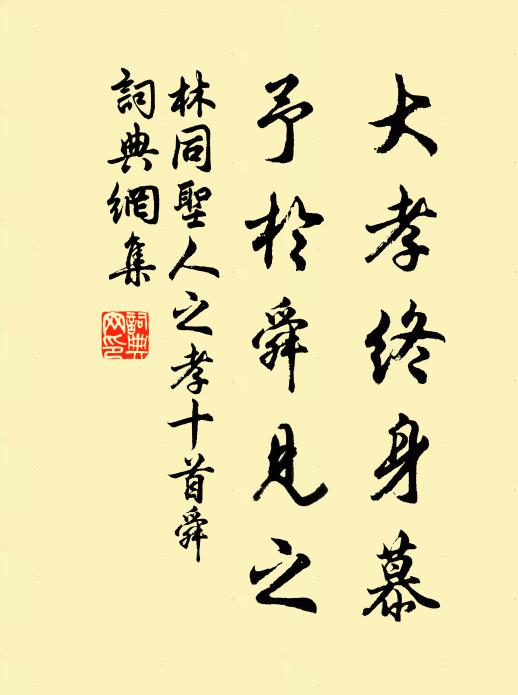 大孝終身慕
予於舜見之
林同聖人之孝十首舜
詞典網集
詞典網印